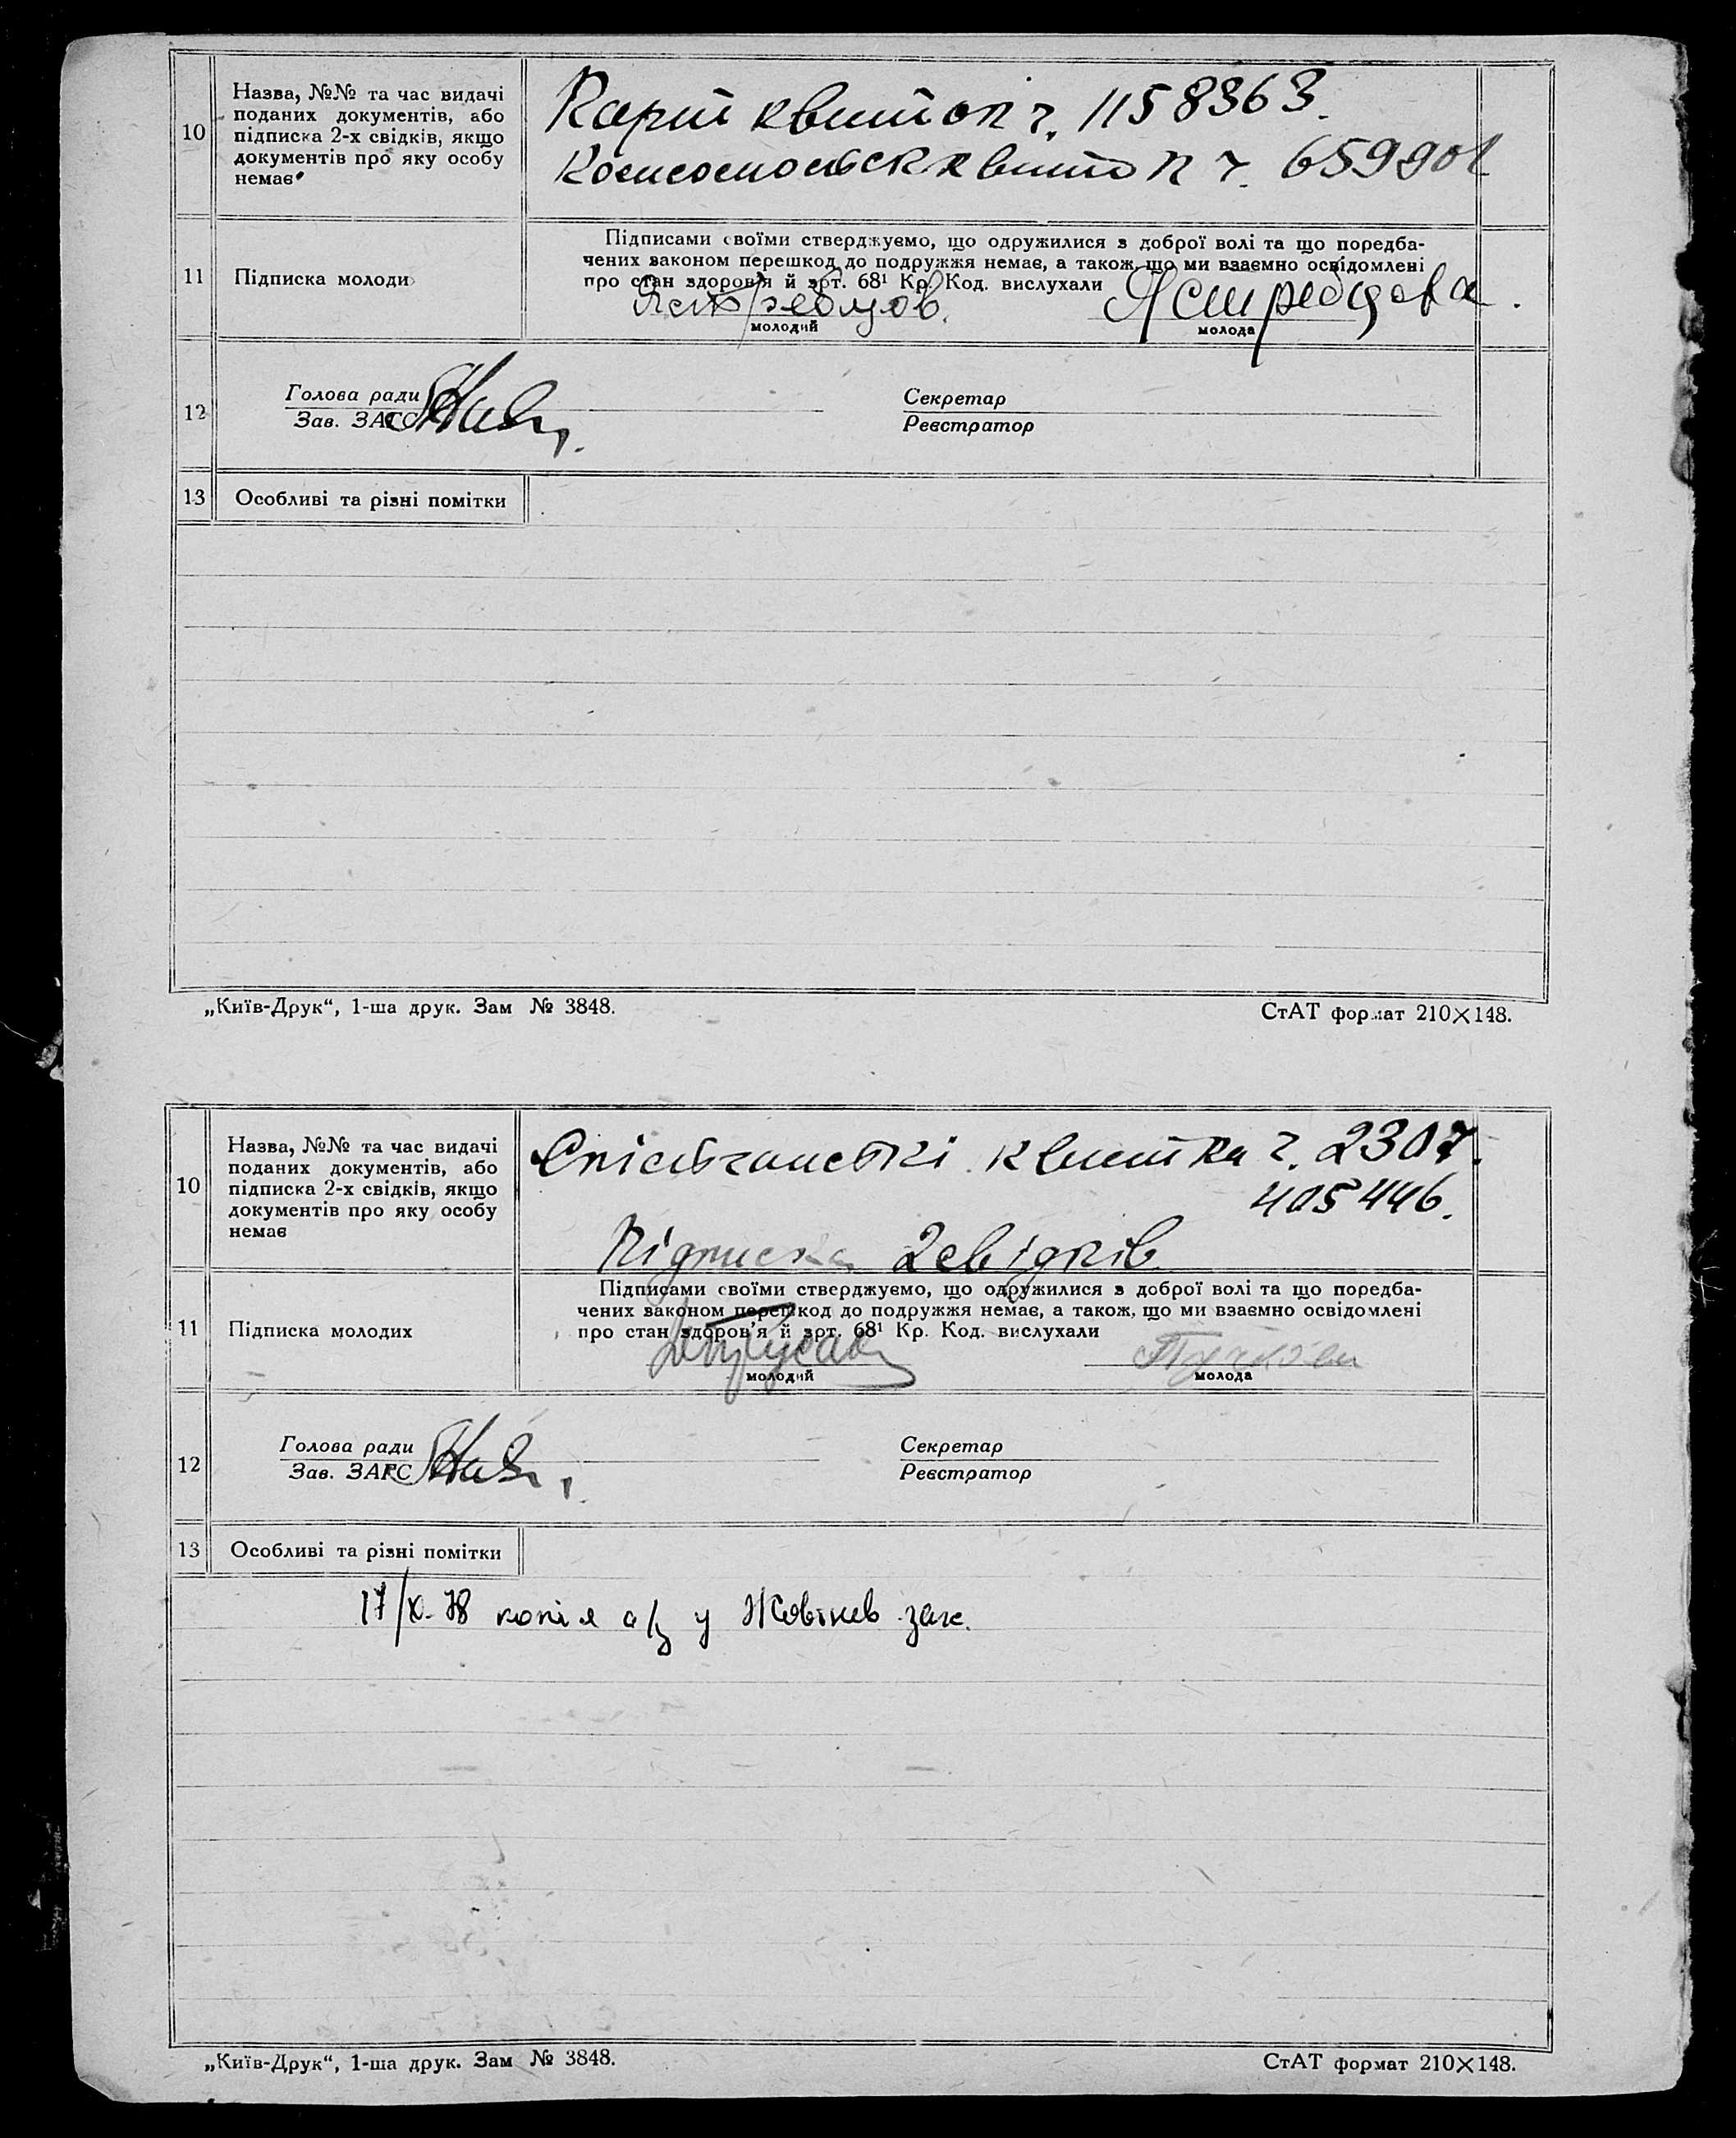 10
Назва, №№ та час видачі
поданих документів, або
підписка 2-х свідків, якщо
документів про яку особу
немає
Карт квиток ч. 1158363.
Комсомольськ квиток ч. 659901
11
Підписка молоди
Підписами своїми стверджуємо, що одружилися з доброї волі та що поредба-
чених законом перешкод до подружжя немає, а також, що ми взаємно освідомлені
про стан здоров'я й арт. 68¹ Кр. Код. вислухали
Ястребцов.
Ястребцова.
молодий
молода
12
Голова ради
Зав. ЗАГС
Секретар
Реєстратор
13
Особливі та різні помітки
„Київ-Друк“, 1-ша друк. Зам № 3848.
СтАТ формат 210×148.
10
Назва, №№ та час видачі
поданих документів, або
підписка 2-х свідків, якщо
документів про яку особу
немає
квитка ч. 2307.
405446.
Підписка 2 свідків
11
Підписка молодих
Підписами своїми стверджуємо, що одружилися з доброї волі та що поредба-
чених законом перешкод до подружжя немає, а також, що ми взаємно освідомлені
про стан здоров'я й арт. 68¹ Кр. Код. вислухали
молодий
молода
12
Голова ради
Зав. ЗАГС
Секретар
Реєстратор
13
Особливі та різні помітки
17/X-78 копія а/з у Жовтнев загс.
„Київ-Друк“, 1-ша друк. Зам № 3848.
СтАТ формат 210×148.